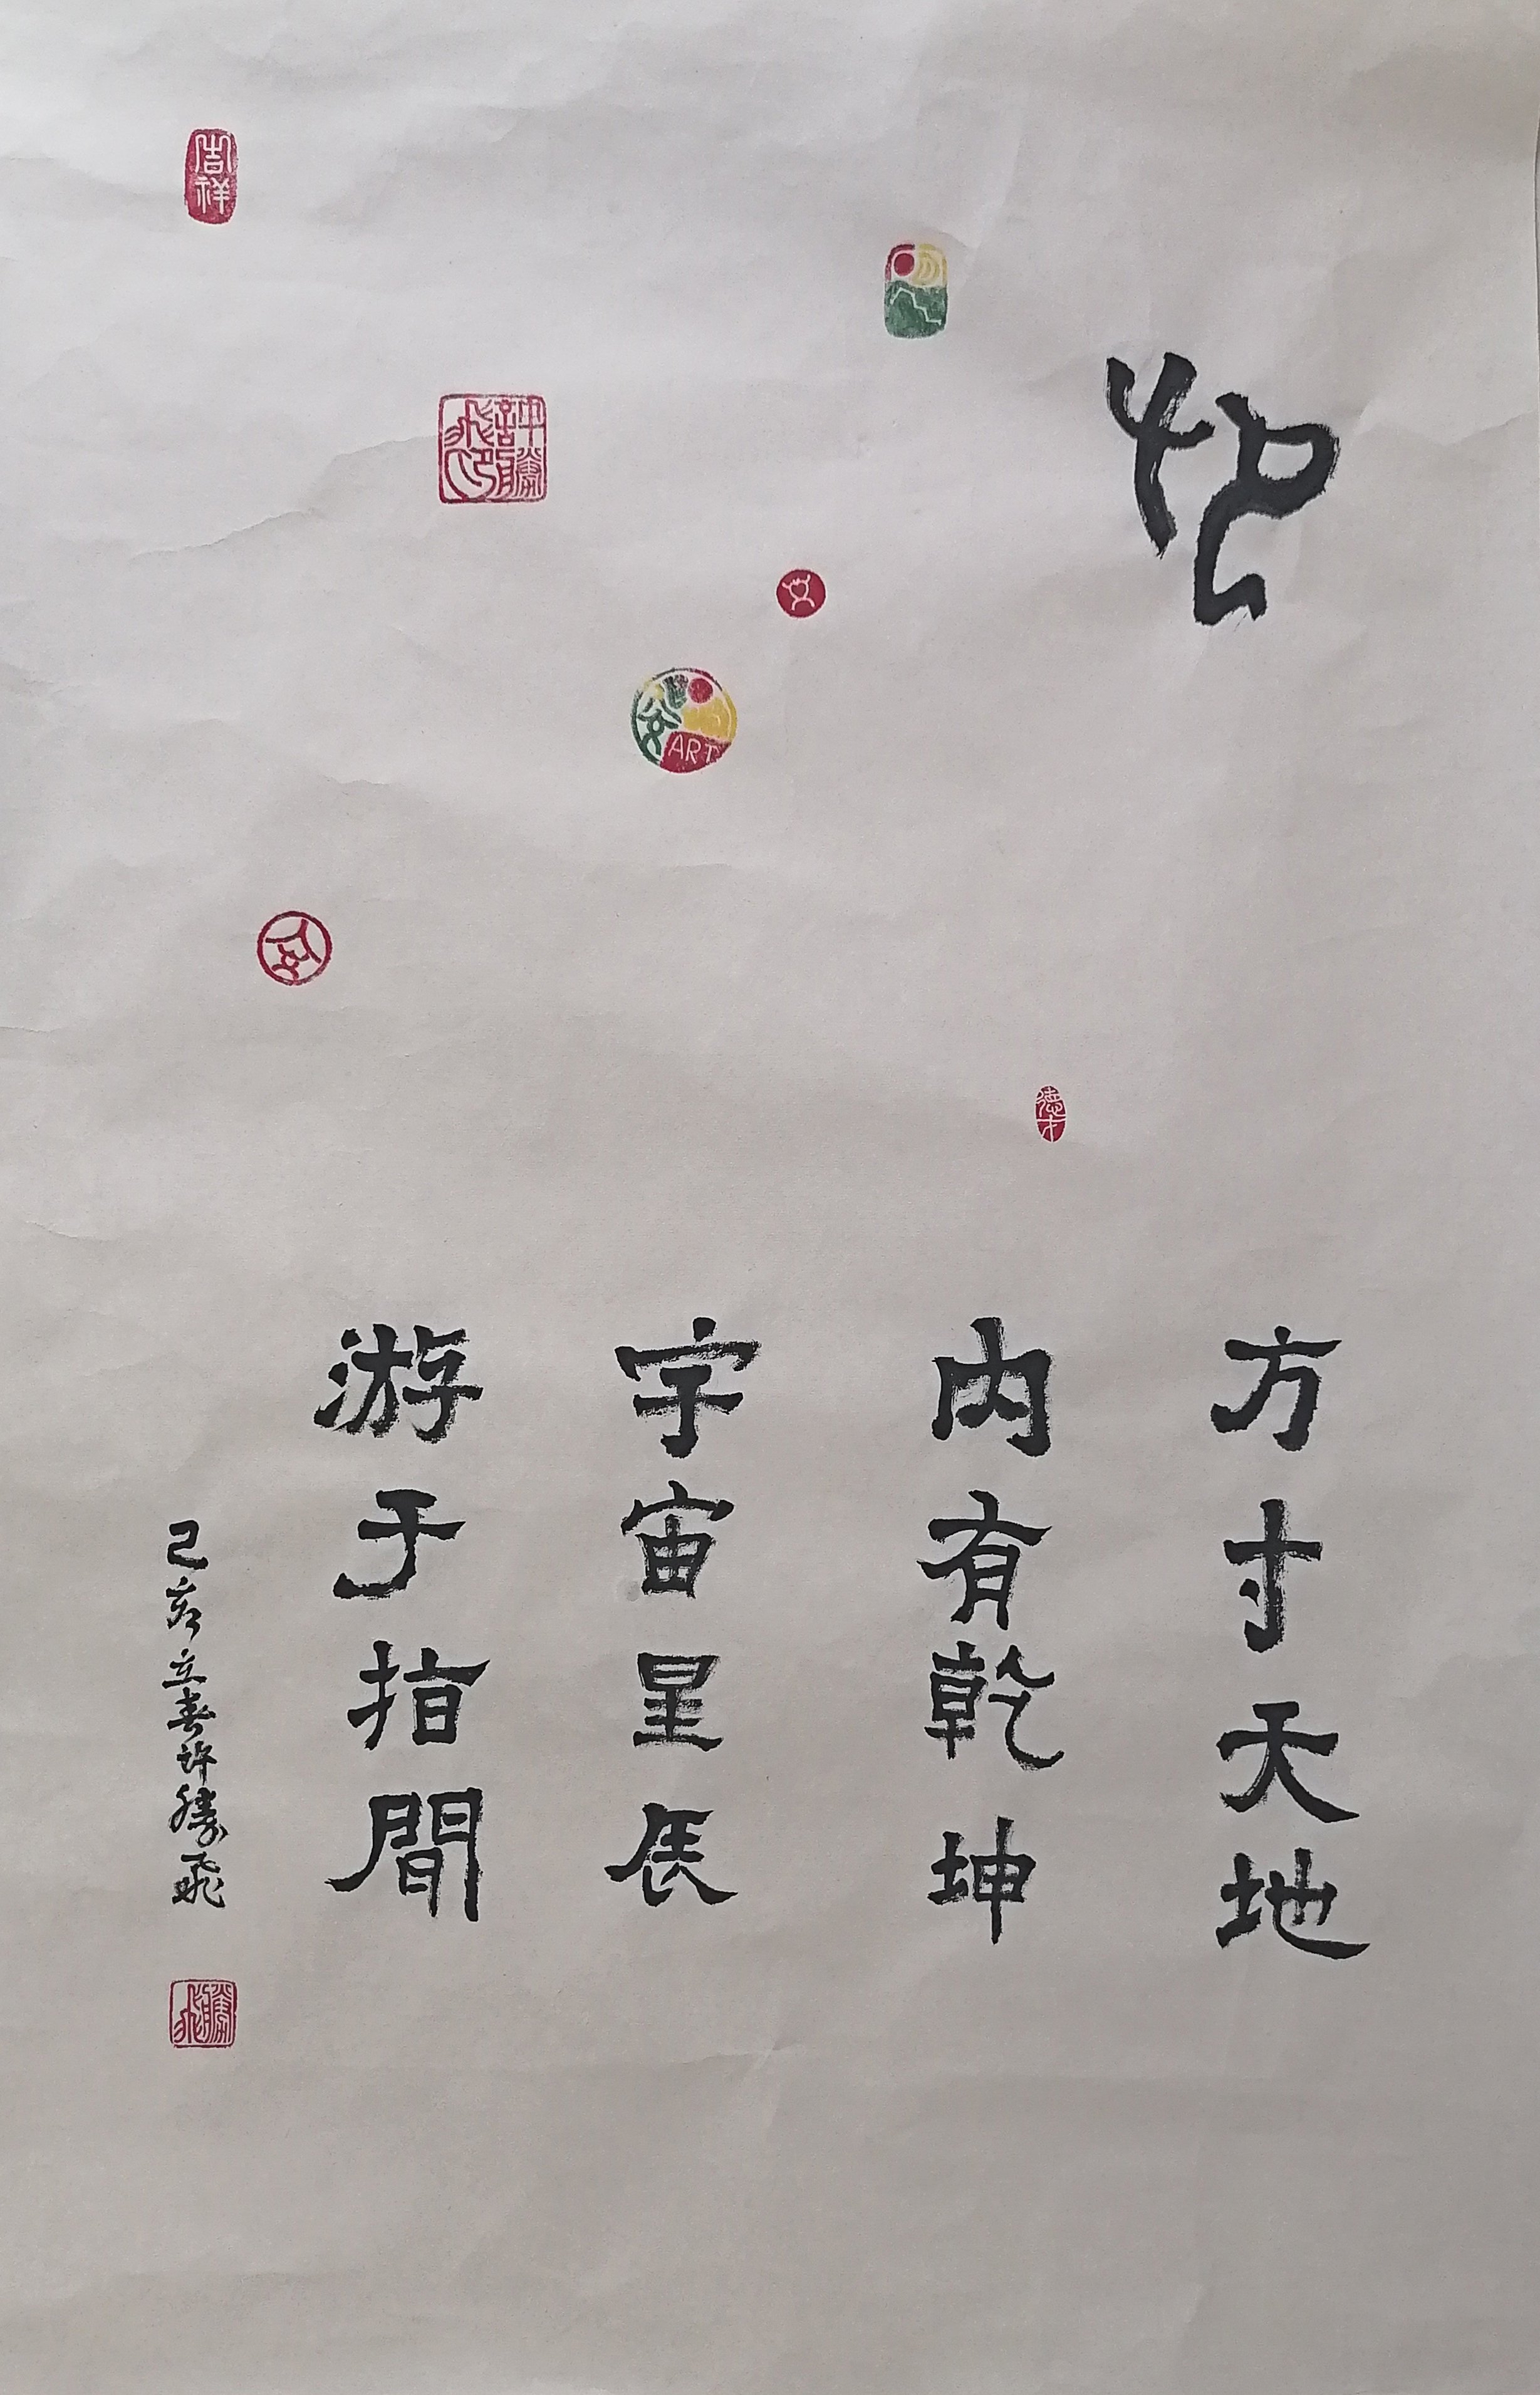 印
方寸天地
内有乾坤
宇宙星辰
游于指間
己亥立春許勝飛
勝飛
許勝飛印
吉祥
ART
德才